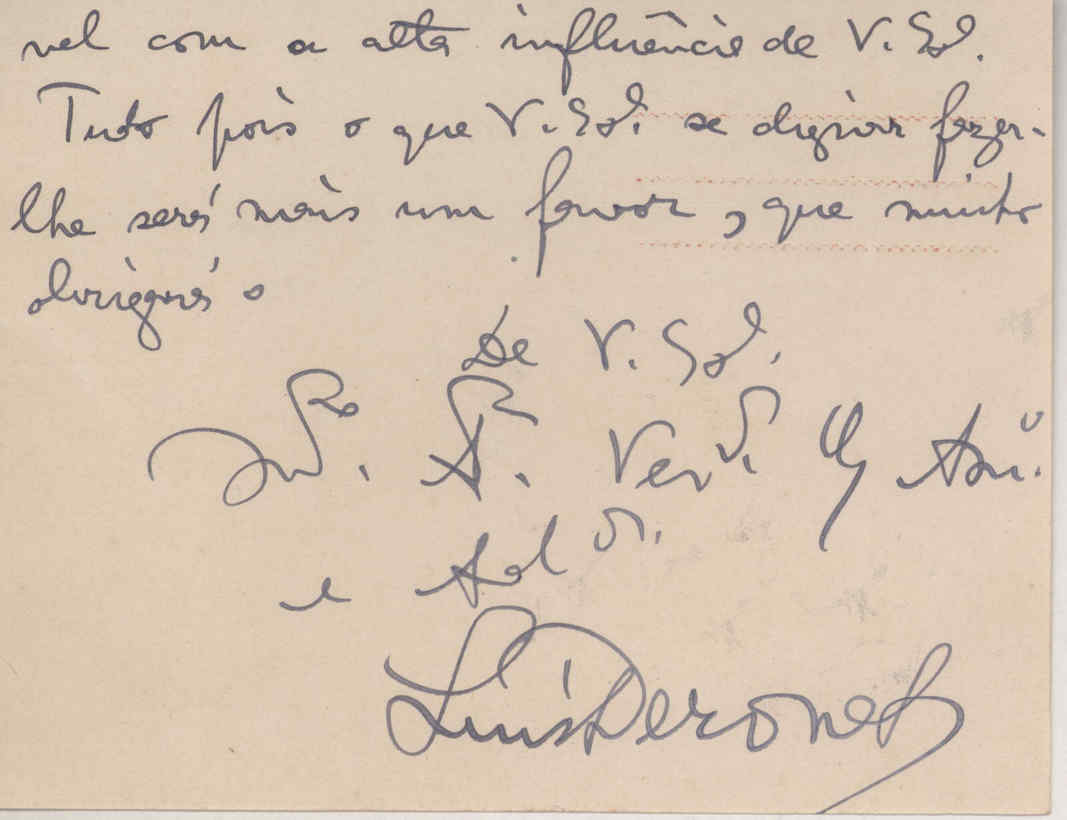 vel com a alta influência de V. Exª.
Tudo pois o que V. Exª. se dignar fazer-
lhe será mais um favor, que muito
obrigará o
De V. Exª.
At. Ven. Am.
e
Luís Deronet